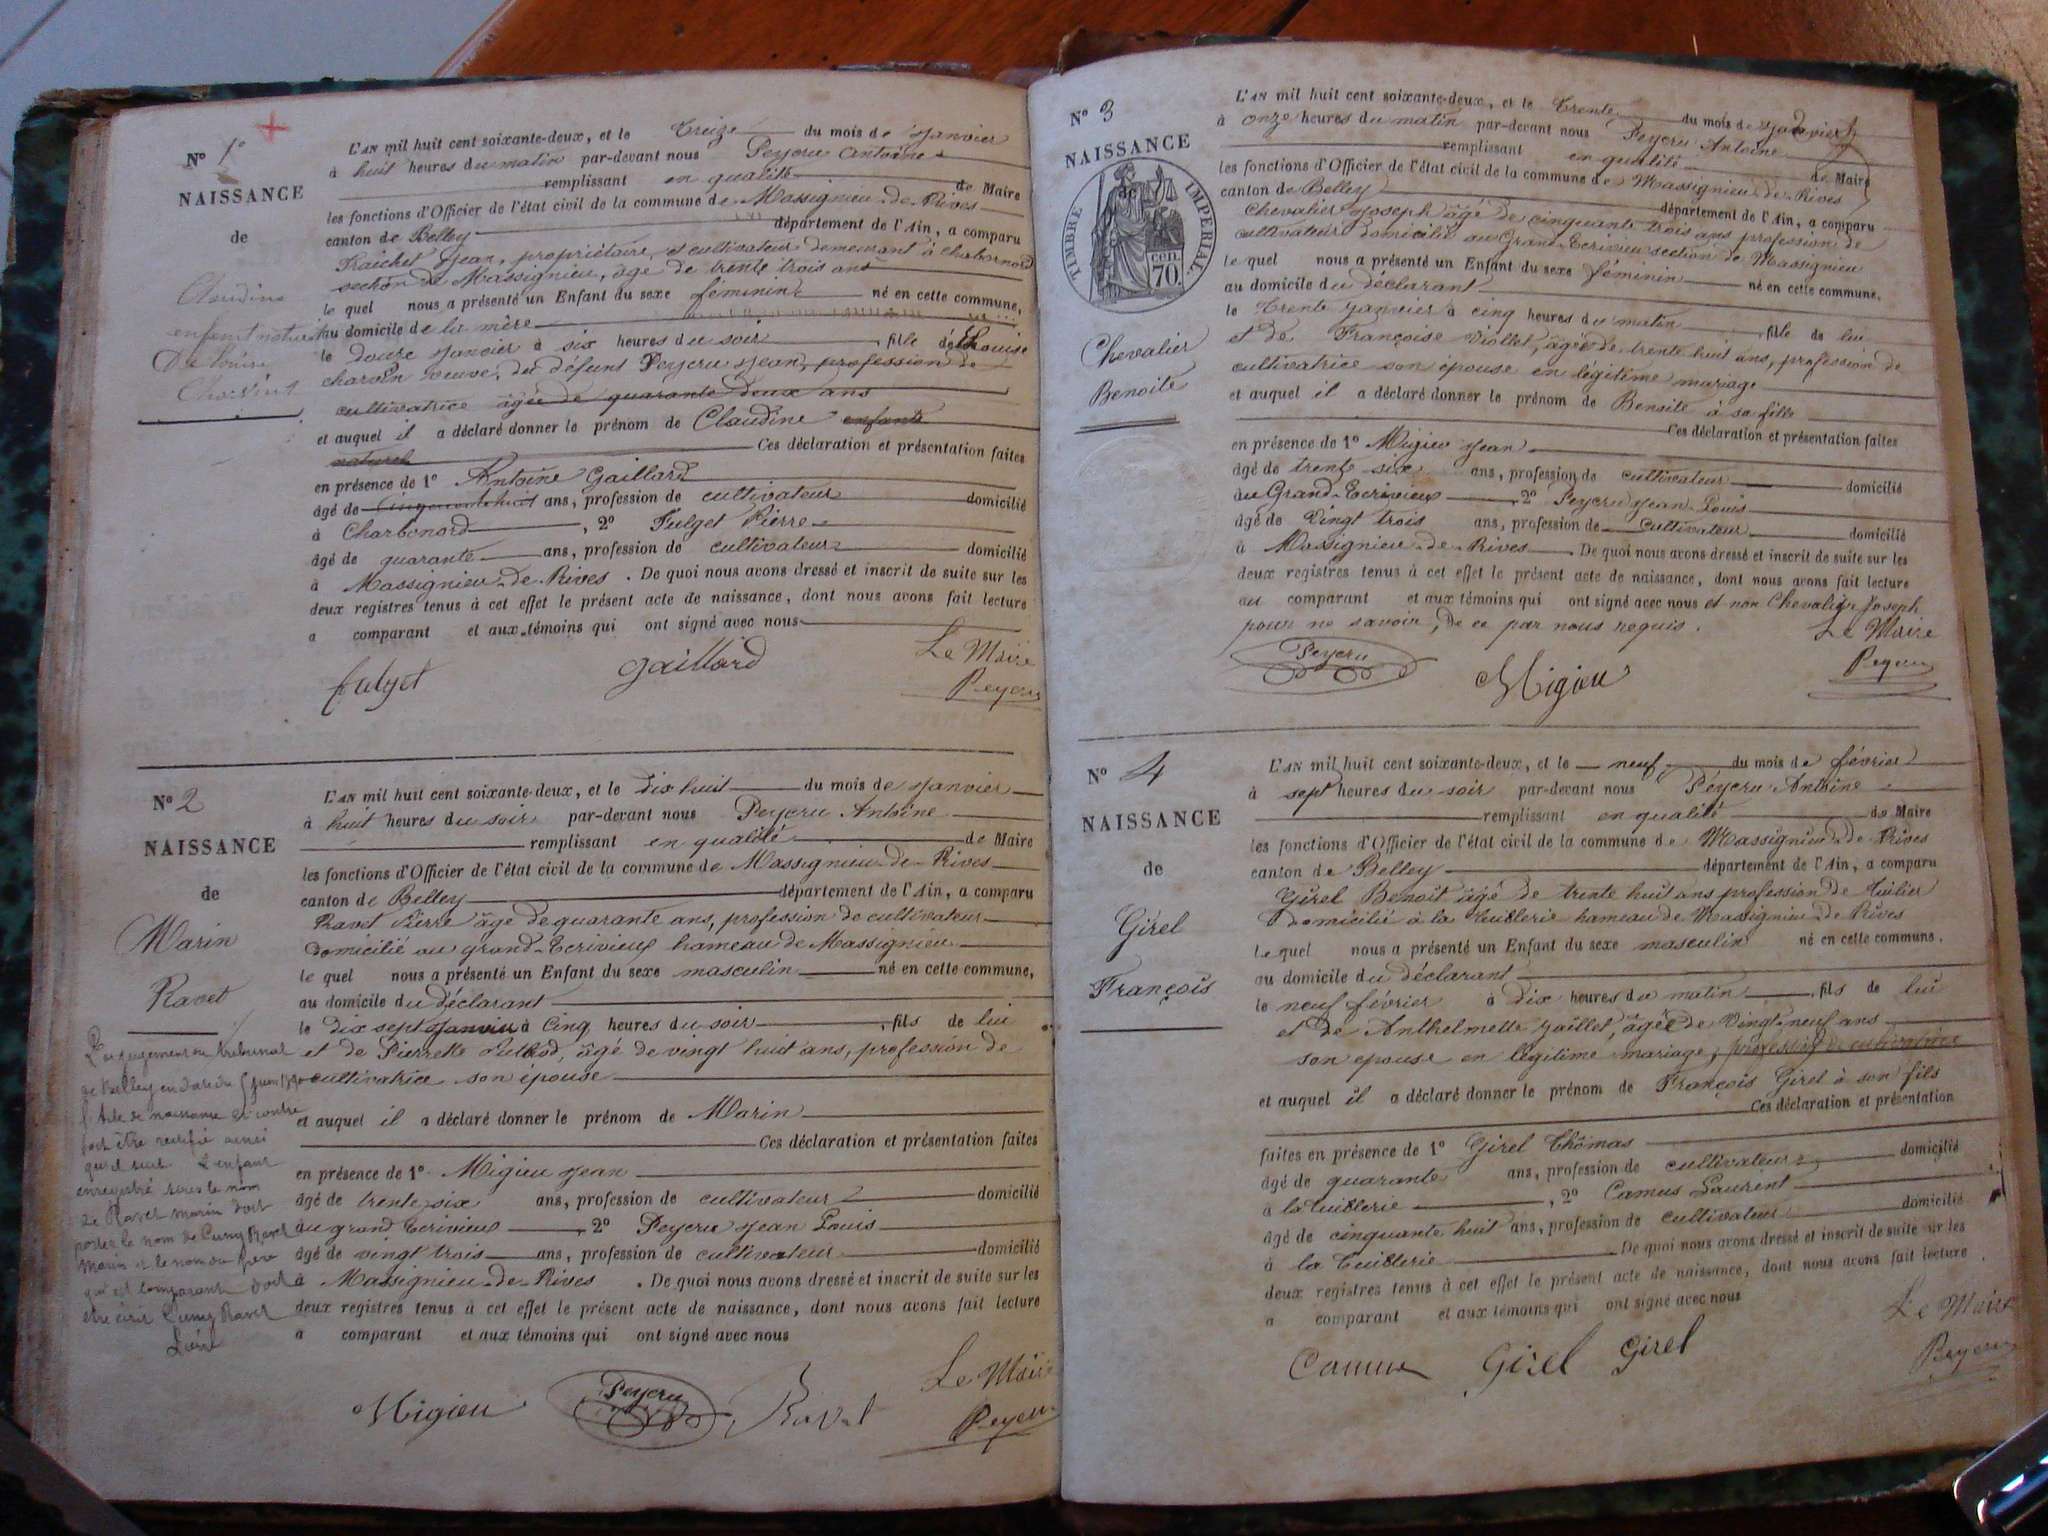 Nº 1º
NAISSANCE
de
Claudine
enfant naturel
De Louise
L'AN mil huit cent soixante-deux, et le Treize du mois de Janvier
à huit heures du matin par-devant nous Peyeru Antoine
remplissant en qualité de Maire
les fonctions d'Officier de l'état civil de la commune de Massignieu-de-Rives
canton de Belley département de l'Ain, a comparu
Fraichet Jean, propriétaire, et cultivateur demeurant à
section de Massignieu, âgé de trente trois ans
le quel nous a présenté un Enfant du sexe féminin né en cette commune,
au domicile de la mère
le douze Janvier à six heures du soir, fille de Louise
charvin veuve, du défunt Peyeru Jean, profession de
cultivatrice âgée de quarante deux ans
et auquel il a déclaré donner le prénom de Claudine enfant
naturel Ces déclaration et présentation faites
en présence de 1º Antoine Gaillard
âgé de ans, profession de cultivateur domicilié
à Charbonod, 2º Fulget Pierre
âgé de quarante ans, profession de cultivateur domicilié
à Massignieu-de-Rives. De quoi nous avons dressé et inscrit de suite sur les
deux registres tenus à cet effet le présent acte de naissance, dont nous avons fait lecture
a comparant et aux témoins qui ont signé avec nous
Le Maire
fulget gaillard Peyeru
Nº 2
NAISSANCE
de
Marin
Ravet
Par jugement du tribunal
de Belley en date du
l'acte de naissance ci contre
doit être rectifié ainsi
qu'il suit l'enfant
enregistré sous le nom
de Ravet Marin doit
porter le nom de Cuny Ravet
Marin et le nom du père
qui est comparant doit
être écrit Cuny Ravet
L'AN mil huit cent soixante-deux, et le dix huit du mois de Janvier
à huit heures du soir par-devant nous Peyeru Antoine
remplissant en qualité de Maire
les fonctions d'Officier de l'état civil de la commune de Massignieu-de-Rives
canton de Belley département de l'Ain, a comparu
Ravet Pierre âgé de quarante ans, profession de cultivateur
domicilié au grand-Ecrivieux hameau de Massignieu
le quel nous a présenté un Enfant du sexe masculin né en cette commune,
au domicile du déclarant
le dix sept Janvier à cinq heures du soir, fils de lui
et de Pierrette âgé de vingt huit ans, profession de
cultivatrice son épouse
et auquel il a déclaré donner le prénom de Marin
Ces déclaration et présentation faites
en présence de 1º Migieu Jean
âgé de trente six ans, profession de cultivateur domicilié
au grand Ecrivieux, 2º Peyeru Jean Louis
âgé de vingt trois ans, profession de cultivateur domicilié
à Massignieu-de-Rives. De quoi nous avons dressé et inscrit de suite sur les
deux registres tenus à cet effet le présent acte de naissance, dont nous avons fait lecture
a comparant et aux témoins qui ont signé avec nous
Le Maire
Migieu Peyeru Ravet Peyeru
Nº 3
NAISSANCE
de
TIMBRE IMPERIAL.
CEN. 70.
Chevalier
Benoite
L'AN mil huit cent soixante-deux, et le Trente du mois de Janvier
à onze heures du matin par-devant nous Peyeru Antoine
remplissant en qualité de Maire
les fonctions d'Officier de l'état civil de la commune de Massignieu-de-Rives
canton de Belley département de l'Ain, a comparu
Chevalier Joseph âgé de cinquante trois ans profession de
cultivateur domicilié au Grand-Ecrivieu section de Massignieu
le quel nous a présenté un Enfant du sexe féminin né en cette commune,
au domicile du déclarant
le Trente Janvier à cinq heures du matin, fille de lui
et de Françoise Viollet, âgée de trente huit ans, profession de
cultivatrice son épouse en légitime mariage
et auquel il a déclaré donner le prénom de Benoite à sa fille
Ces déclaration et présentation faites
en présence de 1º Migieu Jean
âgé de trente six ans, profession de cultivateur domicilié
au Grand-Ecrivieux, 2º Peyeru Jean Louis
âgé de Vingt trois ans, profession de cultivateur domicilié
à Massignieu-de-Rives. De quoi nous avons dressé et inscrit de suite sur les
deux registres tenus à cet effet le présent acte de naissance, dont nous avons fait lecture
au comparant et aux témoins qui ont signé avec nous et non Chevalier Joseph
pour ne savoir, de ce par nous requis.
Le Maire
Peyeru Migieu Peyeru
Nº 4
NAISSANCE
de
Girel
François
L'AN mil huit cent soixante-deux, et le neuf du mois de février
à sept heures du soir par-devant nous Péyeru Antoine
remplissant en qualité de Maire
les fonctions d'Officier de l'état civil de la commune de Massignieu-de-Rives
canton de Belley département de l'Ain, a comparu
Girel Benoit âgé de trente huit ans profession de Tuilier
domicilié à la tuillerie hameau de Massignieu-de-Rives
le quel nous a présenté un Enfant du sexe masculin né en cette commune,
au domicile du déclarant
le neuf février à dix heures du matin, fils de lui
et de Anthelmette Jaillet, âgée de Vingt-neuf ans
son epouse en légitime mariage, profession de cultivatrice
et auquel il a déclaré donner le prénom de François Girel à son fils
Ces déclaration et présentation
faites en présence de 1º Girel Thômas
âgé de quarante ans, profession de cultivateur domicilié
à la tuillerie, 2º Camus Laurent
âgé de cinquante huit ans, profession de cultivateur domicilié
à la Tuillerie De quoi nous avons dressé et inscrit de suite sur les
deux registres tenus à cet effet le présent acte de naissance, dont nous avons fait lecture
a comparant et aux témoins qui ont signé avec nous
Le Maire
Camus Girel Girel Peyeru